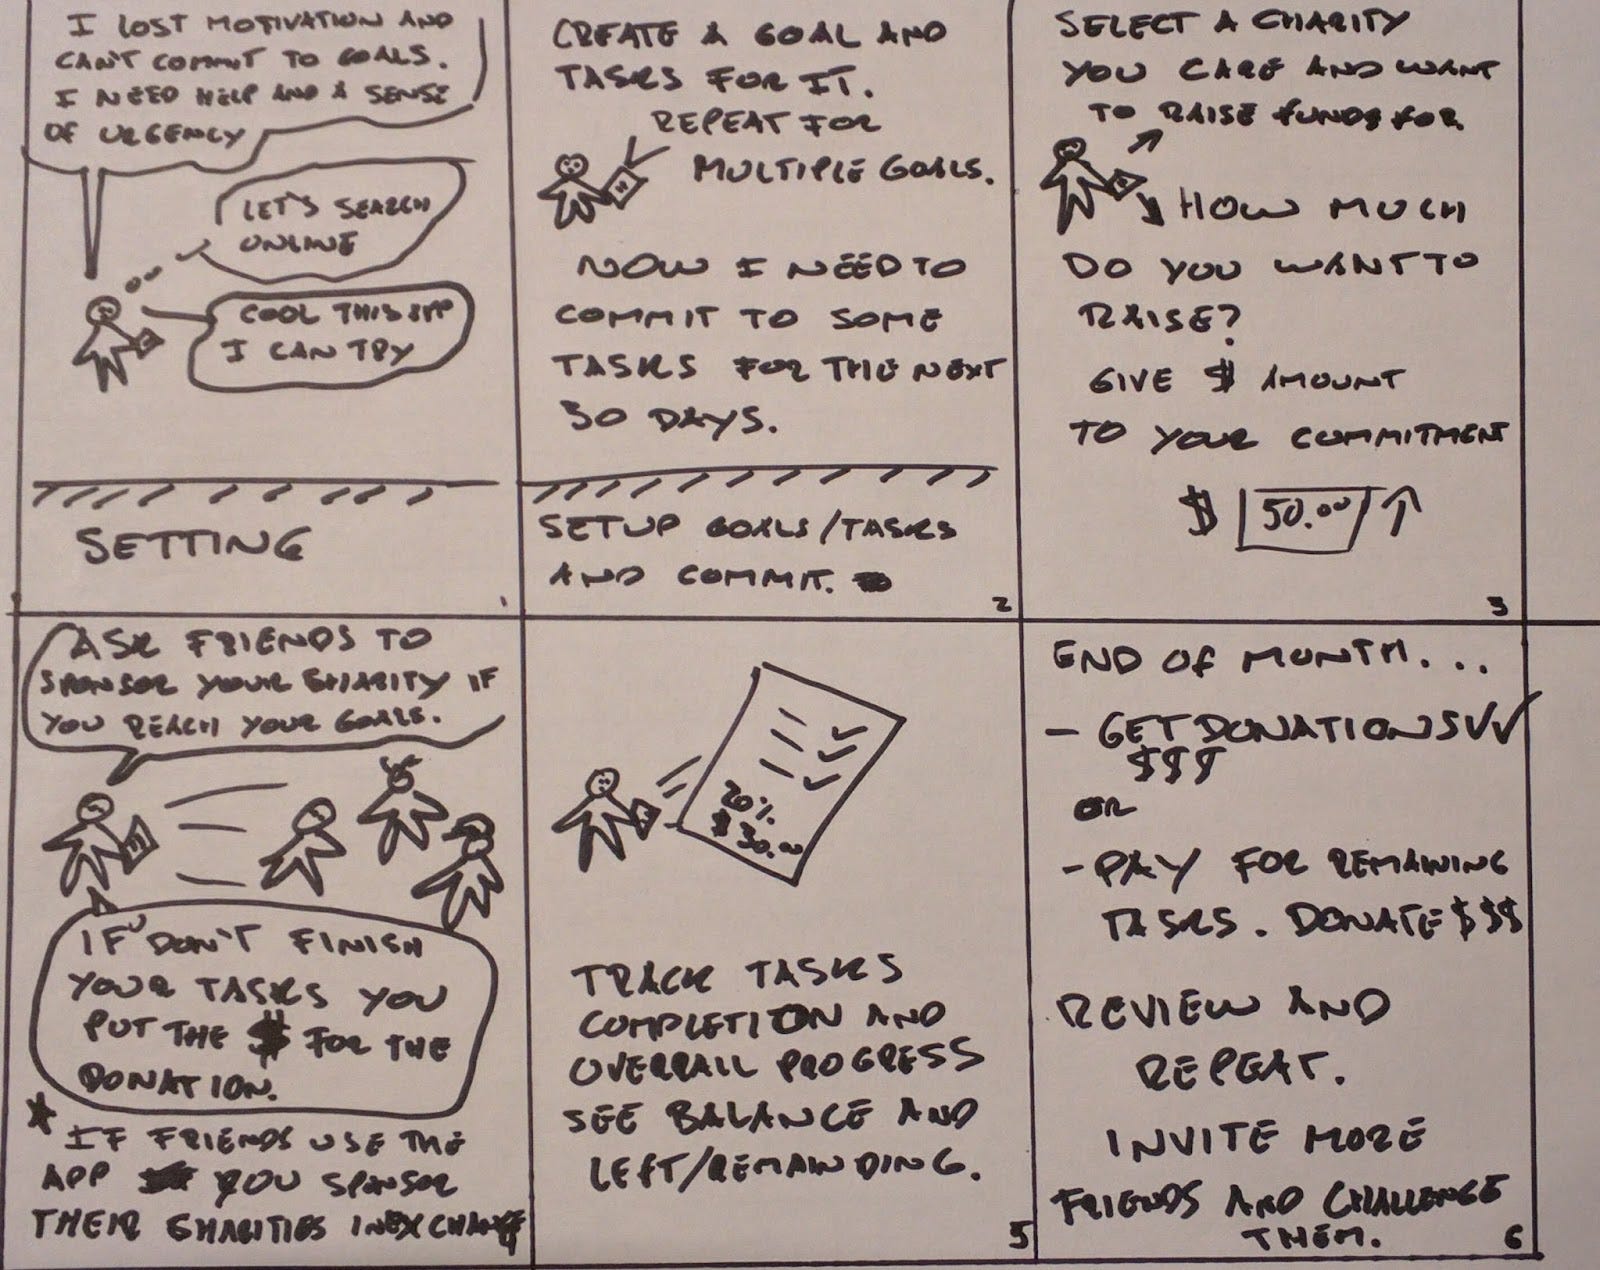 I LOST MOTIVATION AND
CAN'T COMMIT TO GOALS.
I NEED HELP AND A SENSE
OF URGENCY
LET'S SEARCH
ONLINE
COOL THIS APP
I CAN TRY
SETTING
1
CREATE A GOAL AND
TASKS FOR IT.
REPEAT FOR
MULTIPLE GOALS.
NOW I NEED TO
COMMIT TO SOME
TASKS FOR THE NEXT
30 DAYS.
SETUP GOALS/TASKS
AND COMMIT.
2
SELECT A CHARITY
YOU CARE AND WANT
TO RAISE FUNDS FOR
HOW MUCH
DO YOU WANT TO
RAISE?
GIVE $ AMOUNT
TO YOUR COMMITMENT
$ 50.00
3
ASK FRIENDS TO
SPONSOR YOUR CHARITY IF
YOU REACH YOUR GOALS.
IF DON'T FINISH
YOUR TASKS YOU
PUT THE $ FOR THE
DONATION.
* IF FRIENDS USE THE
APP YOU SPONSOR
THEIR CHARITIES IN EXCHANGE
4
20%
$30.00
TRACK TASKS
COMPLETION AND
OVERRALL PROGRESS
SEE BALANCE AND
LEFT/REMAINDING.
5
END OF MONTH...
- GET DONATIONS
$$$
OR
- PAY FOR REMAINING
TASKS. DONATE $$$
REVIEW AND
REPEAT.
INVITE MORE
FRIENDS AND CHALLENGE
THEM.
6